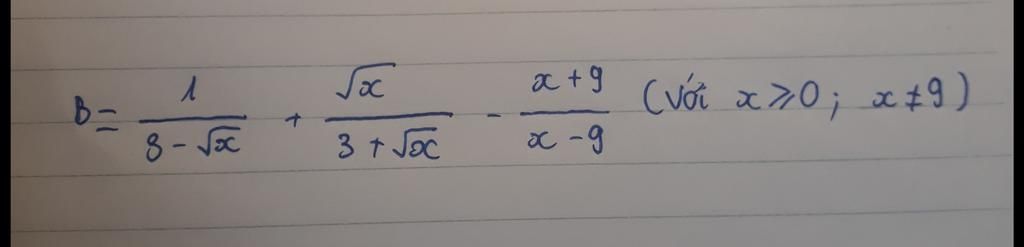 B = \frac{1}{3 - \sqrt{x}} + \frac{\sqrt{x}}{3 + \sqrt{x}} - \frac{x + 9}{x - 9} (với x ⩾ 0; x ≠ 9)